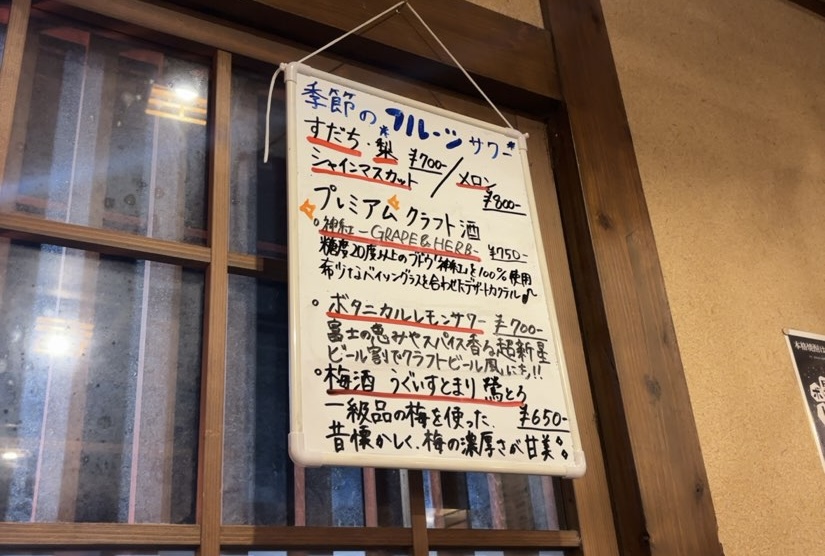 季節のフルーツサワー
すだち・梨 ¥700-
シャインマスカット / メロン
¥800-
プレミアムクラフト酒
神紅 -GRAPE&HERB- ¥750-
糖度20度以上のブドウ「神紅」を100%使用
ベイリングラスを合わせたデザートカクテル♪
ボタニカルレモンサワー ¥700-
富士の恵みやスパイス香る超新星
ビール割でクラフトビール風にも!!
梅酒 うぐいすとまり 鶯とろ
一級品の梅を使った、 ¥650-
昔懐かしく、梅の濃厚さが甘美
本格焼酎は